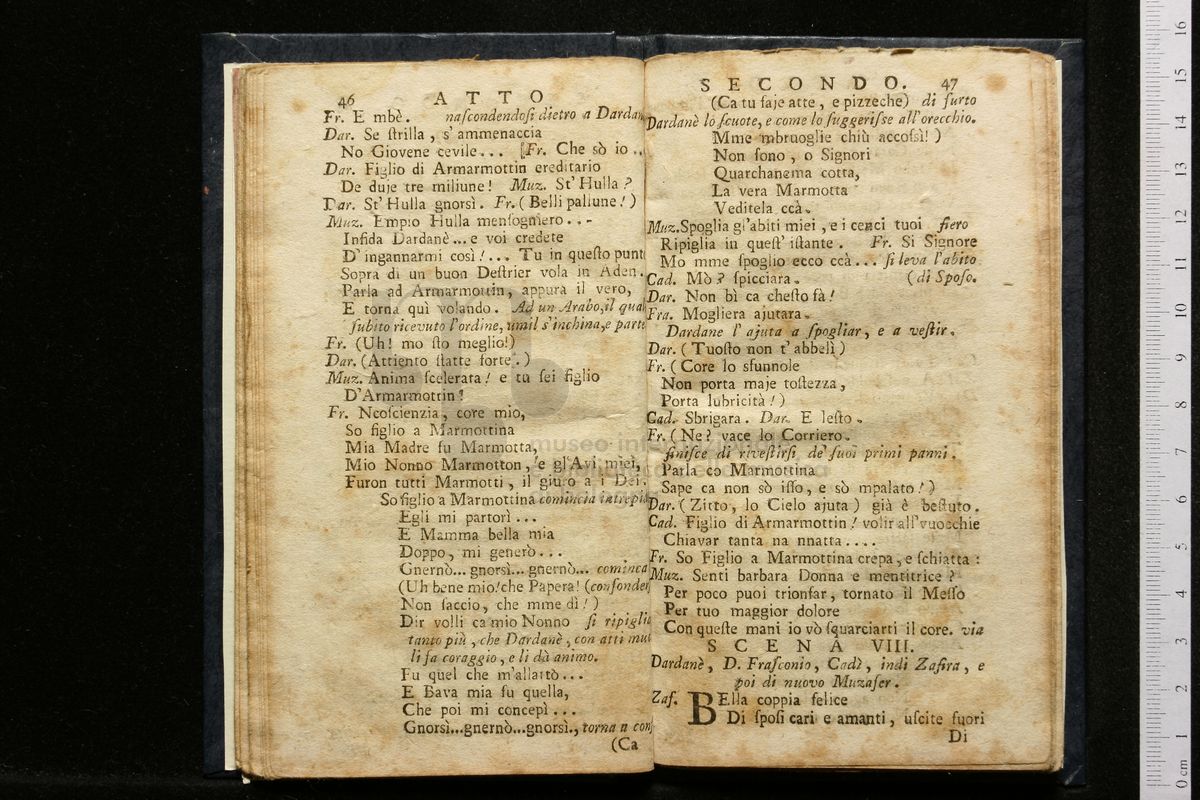 46 ATTO
Fr. E mbè. naſcondendoſi dietro a Dardan
Dar. Se ſtrilla, s' ammenaccia
No Giovene cevile... [Fr. Che sò io ..
Dar. Figlio di Armarmottin ereditario
De duje tre miliune! Muz. St' Hulla?
Dar. St' Hulla gnorsì. Fr. (Belli pallune!)
Muz. Empio Hulla menſogniero...
Infida Dardanè... e voi credete
D' ingannarmi così!... Tu in queſto punt
Sopra di un buon Deſtrier vola in Aden.
Parla ad Armarmottin, appura il vero,
E torna quì volando. Ad un Arabo, il qual
ſubito ricevuto l'ordine, umil s'inchina, e parte
Fr. (Uh! mo ſto meglio!)
Dar. (Attiento ſtatte forte.)
Muz. Anima ſcelerata! e tu ſei figlio
D'Armarmottin?
Fr. Ncoſcienzia, core mio,
So figlio a Marmottina
Mia Madre fu Marmotta,
Mio Nonno Marmotton, e gl'Avi miei,
Furon tutti Marmotti, il giuro a i Dei.
So figlio a Marmottina comincia intrepid
Egli mi partorì...
E Mamma bella mia
Doppo, mi generò...
Gnernò... gnorsì... gnernò... cominca
(Uh bene mio! che Papera! (confonder
Non ſaccio, che mme dì!)
Dir volli ca mio Nonno ſi ripiglia
tanto più, che Dardanè, con atti mul
li fa coraggio, e li dà animo.
Fu quel che m'allattò...
E Bava mia fu quella,
Che poi mi concepì...
Gnorsì...gnernò...gnorsì., torna a conf
(Ca
SECONDO. 47
(Ca tu ſaje atte, e pizzeche) di furto
Dardanè lo ſcuote, e come lo ſuggeriſse all'orecchio.
Mme mbruoglie chiù accoſsì!)
Non ſono, o Signori
Quarchanema cotta,
La vera Marmotta
Veditela ccà.
Muz. Spoglia gl'abiti miei, e i cenci tuoi fiero
Ripiglia in queſt' iſtante. Fr. Si Signore
Mo mme ſpoglio ecco ccà... ſi leva l'abito
Cad. Mò? ſpicciara. (di Spoſo.
Dar. Non bì ca cheſto fà!
Fra. Mogliera ajutara.
Dardane l' ajuta a ſpogliar, e a veſtir.
Dar. (Tuoſto non t' abbelì)
Fr. (Core lo sfunnole
Non porta maje toſtezza,
Porta lubricità!)
Cad. Sbrigara. Dar. E leſto.
Fr. (Ne? vace lo Corriero.
finiſce di riveſtirſi de' ſuoi primi panni.
Parla co Marmottina
Sape ca non sò iſſo, e sò mpalato!)
Dar. (Zitto, lo Cielo ajuta) già è beſtuto.
Cad. Figlio di Armarmottin! volir all'vuocchie
Chiavar tanta na nnatta....
Fr. So Figlio a Marmottina crepa, e ſchiatta:
Muz. Senti barbara Donna e mentitrice?
Per poco puoi trionfar, tornato il Meſſo
Per tuo maggior dolore
Con queſte mani io vò ſquarciarti il core. via
SCENA VIII.
Dardanè, D. Fraſconio, Cadì, indi Zafira, e
poi di nuovo Muzafer.
Zaf. BElla coppia felice
Di ſpoſi cari e amanti, uſcite fuori
Di
0 cm 1 2 3 4 5 6 7 8 9 10 11 12 13 14 15 16